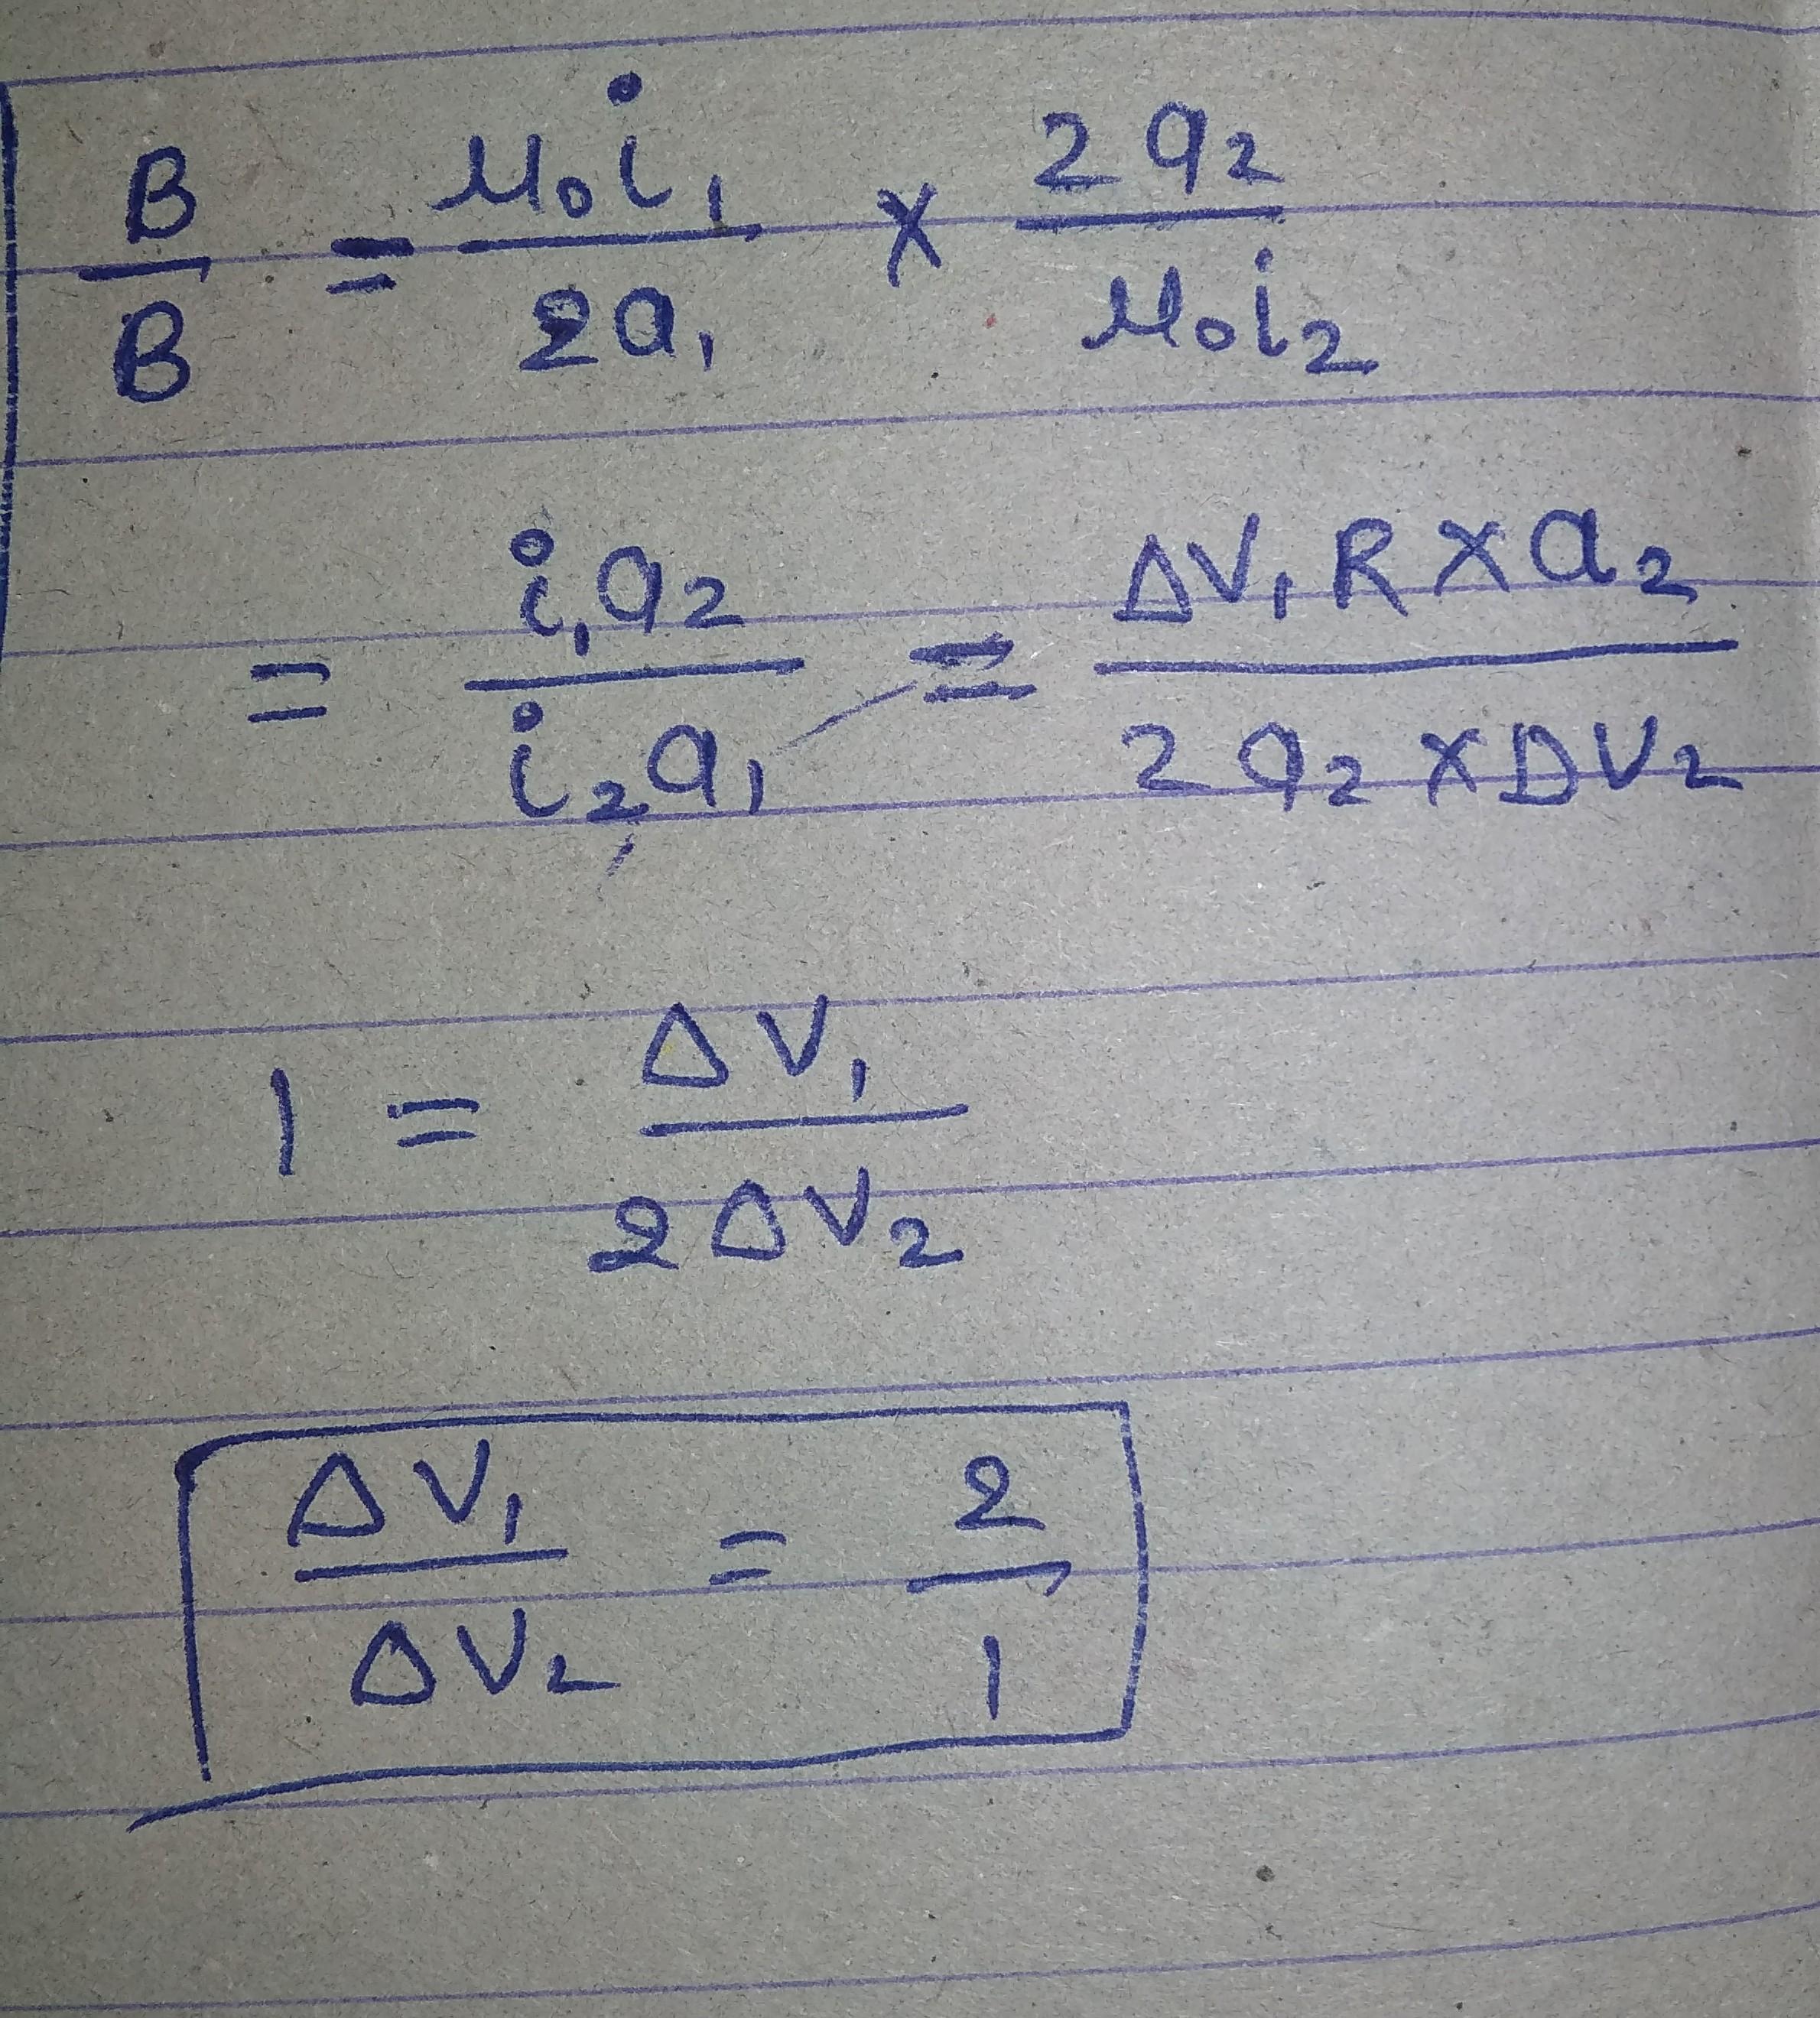 B/B = μ₀i₁/2a₁ × 2a₂/μ₀i₂
= i₁a₂/i₂a₁ = ΔV₁R×a₂/2a₂×DV₂
1 = ΔV₁/2ΔV₂
ΔV₁/ΔV₂ = 2/1